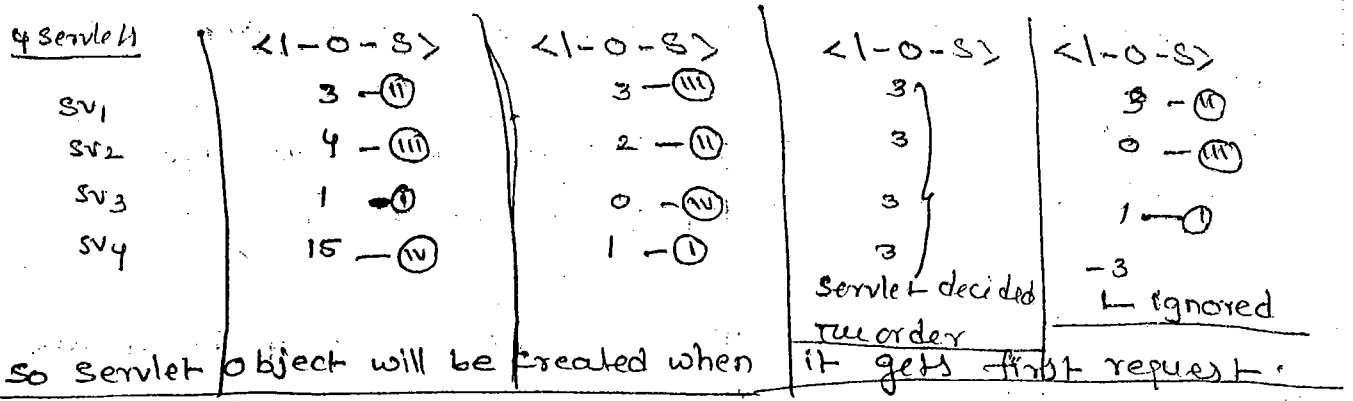 4 servlets <l-o-s> <l-o-s> <l-o-s> <l-o-s>
SV1 3 - (ii) 3 - (iii) 3 - (ii)
SV2 4 - (iii) 2 - (ii) 3 0 - (iii)
SV3 1 - (i) 0 - (iv) 3 1 - (i)
SV4 15 - (iv) 1 - (i) 3 -3
Servlet decided ignored
order
so servlet object will be created when it gets first request.